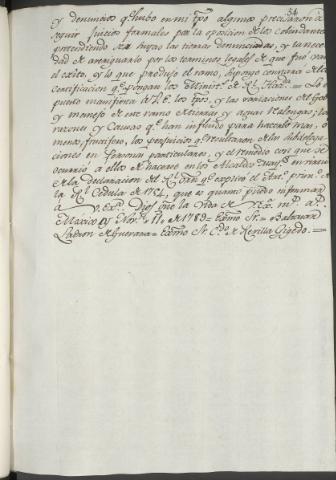 54
y denuncios q.e hubo en mi tpõ algunos precisaron à
seguir juicios formales por la oposicion de los colindantes
pretendiendo ser suyas las tierras denunciadas, y la necesi
dad de averiguarlo por los terminos legales de que fué vario
el exito, y lo que produjo el ramo, supongo constara de la
certificacion q.e pongan los Minist.s de R.l Haz.da = Lo ex
puesto manifiesta à V.E. los tpõs, y las variaciones de Gov.no
y manejo de este ramo de tierras y aguas realengas; las
razones y causas q.e han influido para hacerlo mas, ò
menos, fructifero, los perjuicios q.e resultaron de las subdelega
ciones en personas particulares, y el remedio con que se
ocurrió a ellos de hacerse en los Alcaldes may.s en virtud
de la declaracion del R.l orn̄ q.e expresó el Art.o prim.o de
la R.l Cedula de 1754, que es quanto puedo informar
a V. Ex.a Dios gue la vida de V. Ex.a m.s a.s
Mexico y Nov.re 11 de 1789 = Exmo Sr. = Baltasar
Ladron de Guevara = Exmo Sr. C.de de Revilla Gigedo. =